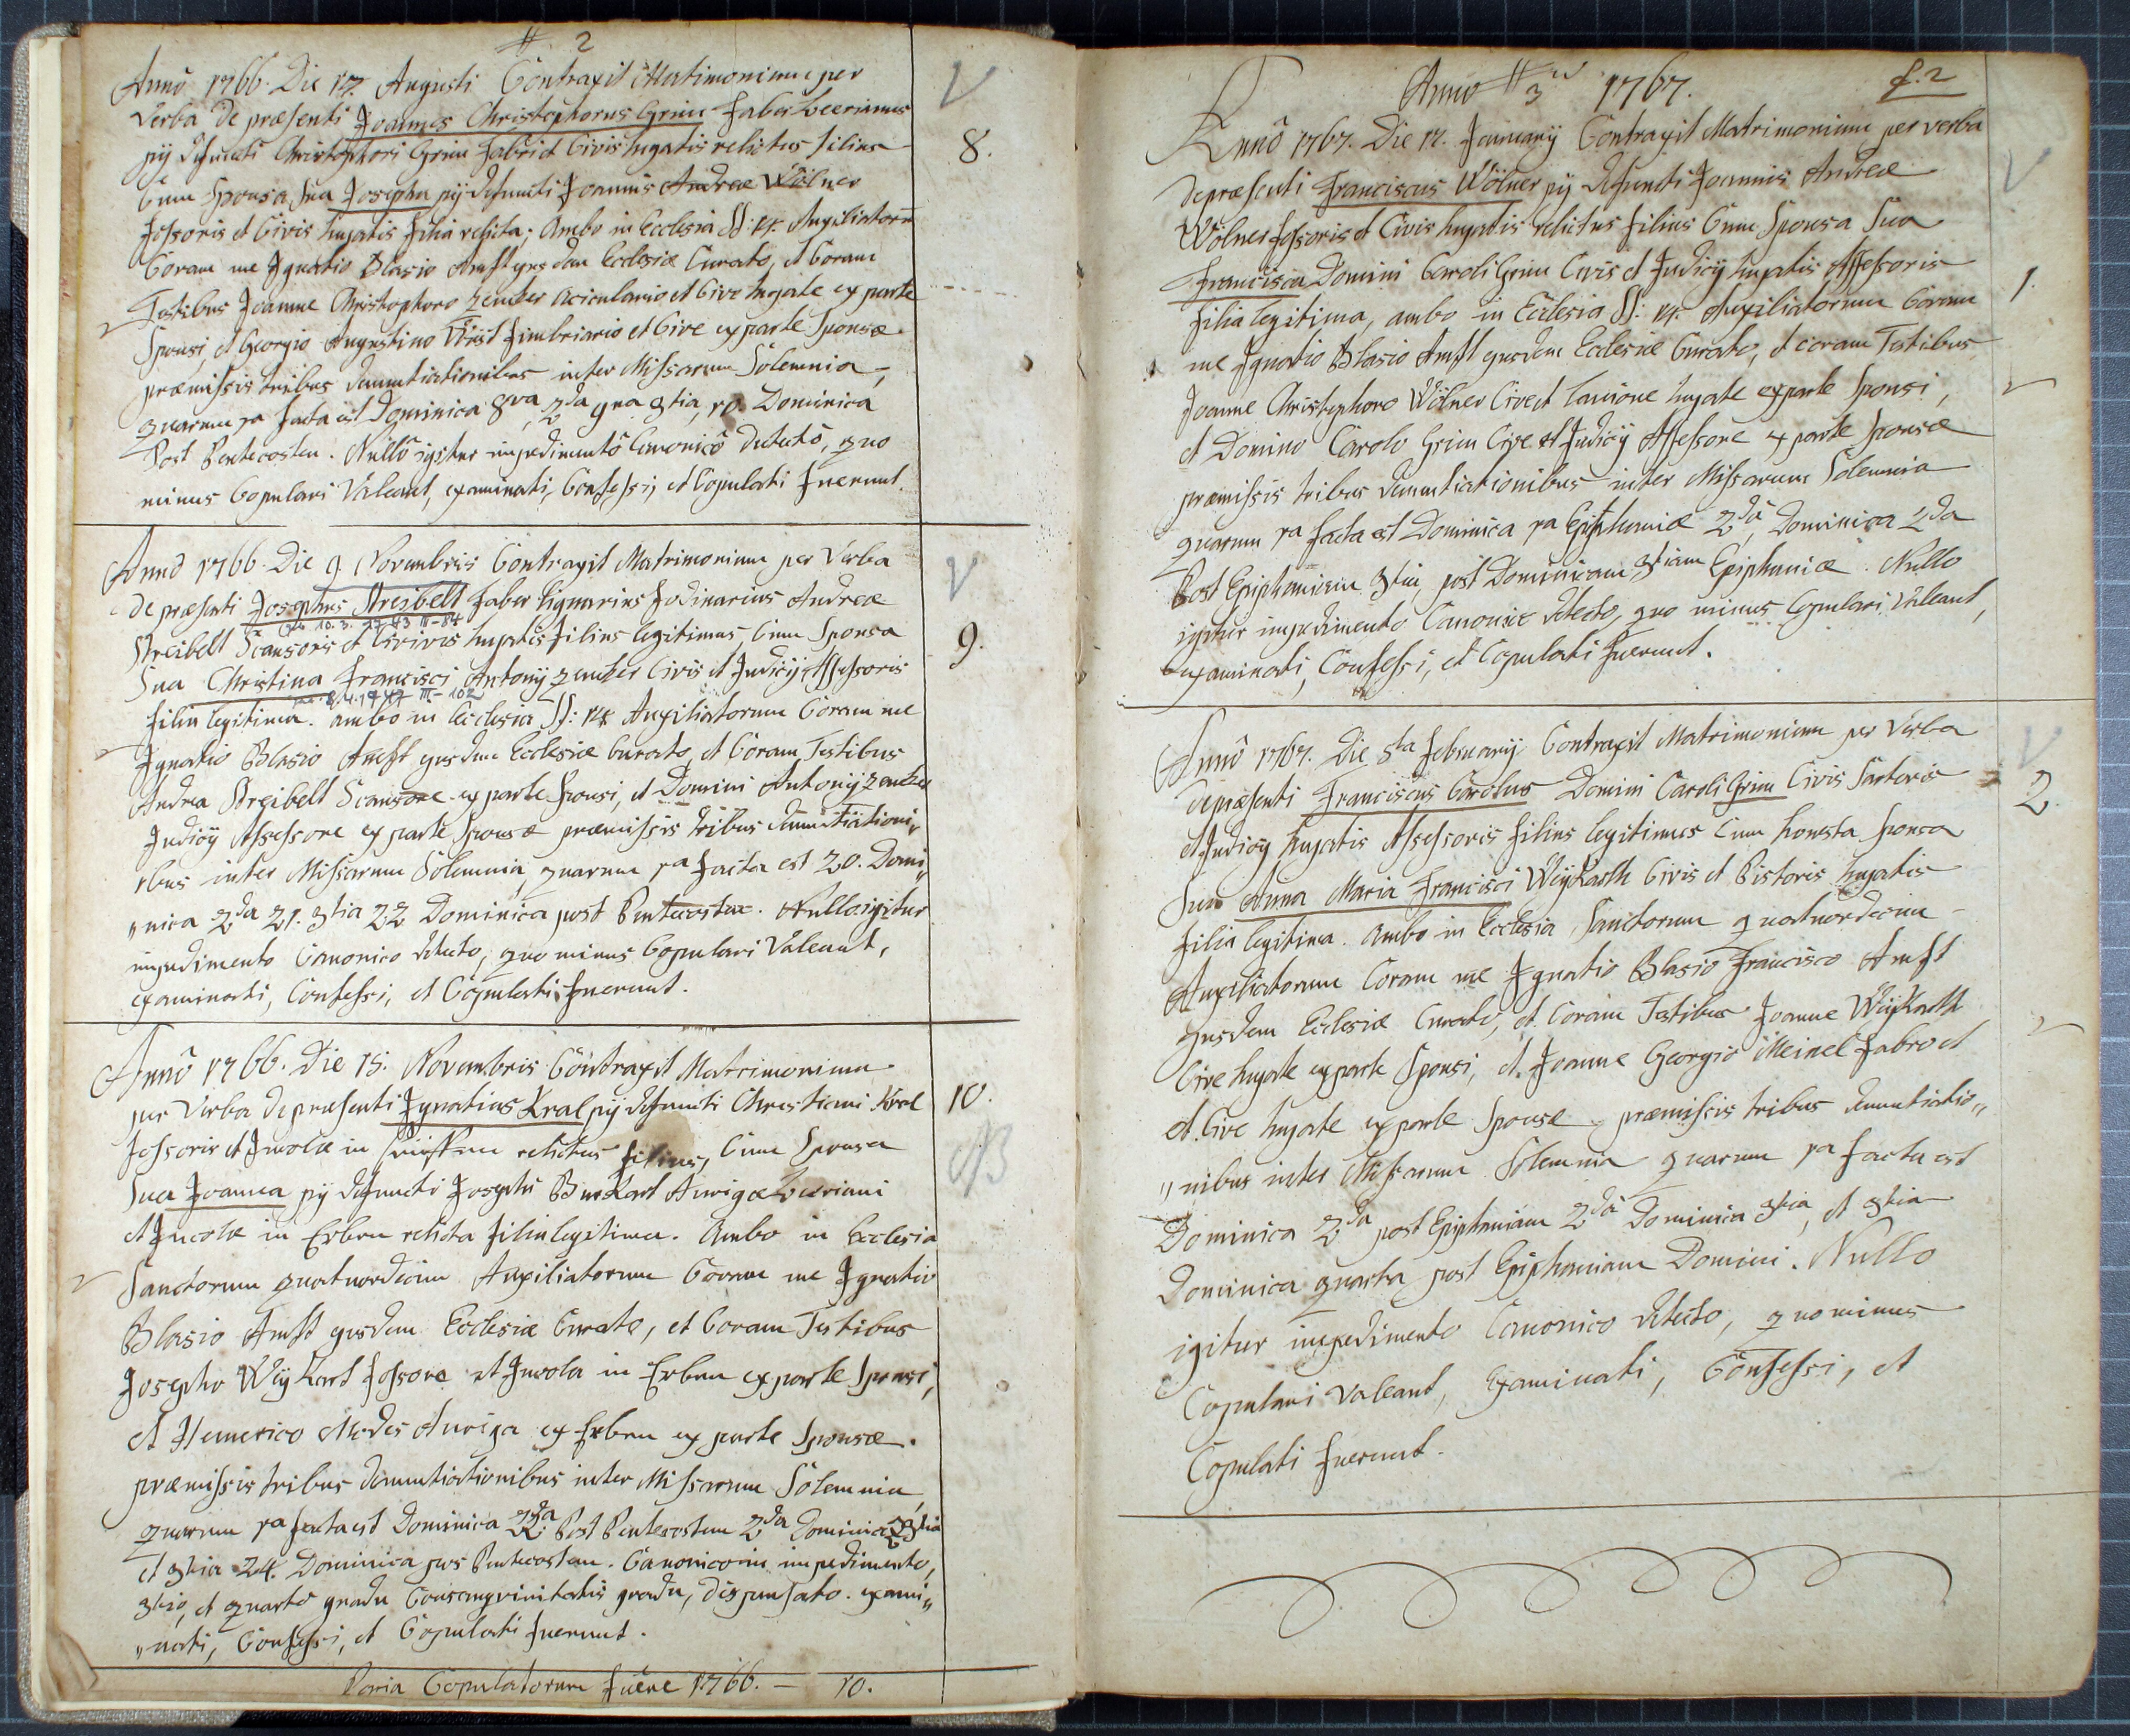 #. 2
Annô 1766. Die 17. Augusti Contraxit Matrimonium per
Verba de præsenti Joannes Christophorus Grim Faber
pij defuncti Christophori Grim Fabri et Civis hujatis relictus filius
Cum Sponsa Sua Josepha pij defuncti Joannis Andreæ Wölner
Fossoris et Civis hujatis filia relicta; Ambo in Ecclesia SS: 14. Auxiliatorū
Coram me Ignatio Blasio ejusdem Ecclesiæ Curato, et Coram
Testibus Joanne Christophoro Zenker Aciculario et Cive hujate ex parte
Sponsi, et Georgio Augustino Wüst Fimbriario et Cive ex parte Sponsæ.
præmissis tribus denuntiationibus inter Missarum Solemnia,
quarum 1a facta est Dominica 8va, 2da 9na 3tia, 10. Dominica
Post Pentecosten. Nullô igitur impedimentô Canonicô detectô, quo
minus Copulari Valeant, examinati, Confessi, et Copulati fuerunt.
8.
Annô 1766. Die 9. Novembris Contraxit Matrimonium per Verba
de præsenti Josephus Streibelt Faber Lignarius Fodinarius Andreæ
10. 3. 1743 III-84
Streibelt Scansoris et Civivis hujatis filius legitimus, Cum Sponsa
Sua Christina Francisci Antonij Zenker Civis et Judicij Assessoris
8.4.1747 III-102
filia legitima. Ambo in Ecclesia SS: 14 Auxiliatorum Coram me
Ignatio Blasio ejusdem Ecclesiæ Curato, et Coram Testibus
Andrea Streibelt Scansore ex parte Sponsi, et Domini Antonij Zenker
Judicij Assessore ex parte Sponsæ præmissis tribus denuntiationi„
„bus inter Missarum Solemnia, quarum 1a facta est 20. Domi„
„nica 2da 21. 3tia 22 Dominica post Pentecosten. Nullo igitur
impedimento Canonico detecto, quo minus Copulari Valeant,
examinati, Confessi, et Copulati fuerunt.
9.
Annô 1766. Die 15. Novembris Contraxit Matrimonium
per Verba de præsenti Ignatius Kral pij defuncti Christiani Kral
Fossoris et Incolæ in relictus filius, Cum Sponsa
Sua Joanna pij defuncti Josephi Burkart Aurigæ
et Incolæ in Erben relicta filia legitima. Ambo in Ecclesia
Sanctorum quatuordecim Auxiliatorum Coram me Ignatio
Blasio ejusdem Ecclesiæ Curato, et Coram Testibus
Josepho Weykart Fossore et Incola in Erben ex parte Sponsi,
et Hemerico Auriga ex Erben ex parte Sponsæ.
præmissis tribus denuntiationibus inter Missarum Solemnia,
quarum 1a facta est Dominica 22da Post Pentecosten 2da Dominica 23tia
et 3tia 24. Dominica pos Pentecosten. Canonico in impedimento,
3tio, et quarto gradu Consangvinitatis gradu, dispensato. exami„
„nati, Confessi, et Copulati fuerunt.
10.
Paria Copulatorum fuêre 1766. — 10.
Anno # 3 1767.
f. 2
Annô 1767. Die 17. Januarij Contraxit Matrimonium per verba
de præsenti Franciscus Wölner pij defuncti Joannis Andreæ
Wölner Fossoris et Civis hujatis relictus filius Cum Sponsa Sua
Francisca Domini Caroli Grim Civis et Judicij hujatis Assessoris
filia legitima, ambo in Ecclesia SS: 14. Auxiliatorum Coram
me Ignatio Blasio ejusdem Ecclesiæ Curato, et coram Testibus
Joanne Christophoro Wölner Cive et Lanione hujate ex parte Sponsi,
et Domino Carolo Grim Cive et Judicij Assessore ex parte Sponsæ
præmissis tribus denuntiationibus inter Missarum Solemnia
quarum 1a facta est Dominica 1a Epiphaniæ 2da, Dominica 2da
Post Epiphaniam 3tia, post Dominicam 3tiam Epiphaniæ. Nullo
igitur impedimento Canonico detecto, quo minus Copulari Valeant,
examinati, Confessi, et Copulati fuerunt.
1.
Annô 1767. Die 8ta Februarij Contraxit Matrimonium per Verba
de præsenti Franciscus Carolus Domini Caroli Grim Civis Sartoris
et Judicij hujatis Assessoris filius legitimus Cum honesta Sponsa
Sua Anna Maria Francisci Weykarth Civis et Pistoris hujatis
filia legitima. Ambo in Ecclesia Sanctorum quatuordecim
Auxiliatorum Coram me Ignatio Blasio Francisco
ejusdem Ecclesiæ Curato, et Coram Testibus Joanne Weykarth
Cive hujate ex parte Sponsi, et Joanne Georgio Meinel Fabro et
et Cive hujate ex parte Sponsæ præmissis tribus denuntiatio„
„nibus inter Missarum Solemnia quarum 1a facta est
Dominica 2da post Epiphaniam 2da Dominica 3tia, et 3tia
Dominica quarta post Epiphaniam Domini. Nullo
igitur impedimento Canonico detecto, quominus
Copulari valeant, Examinati, Confessi, et
Copulati fuerunt.
2.